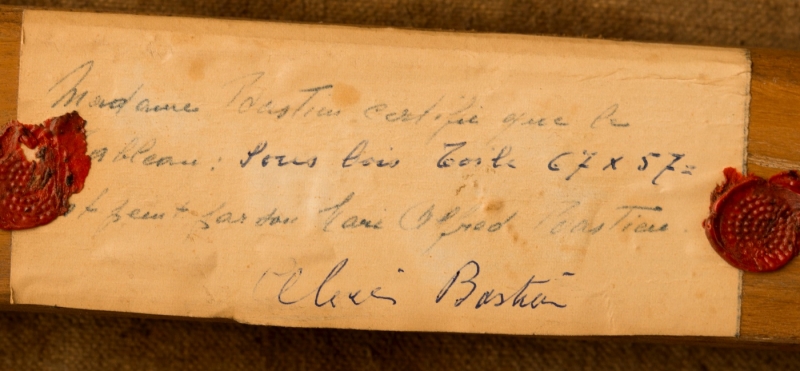 Madame Bastien certifie que le
tableau: Sous bois Toile 67 x 57=
est peint par son Mari Alfred Bastien.
Bastien